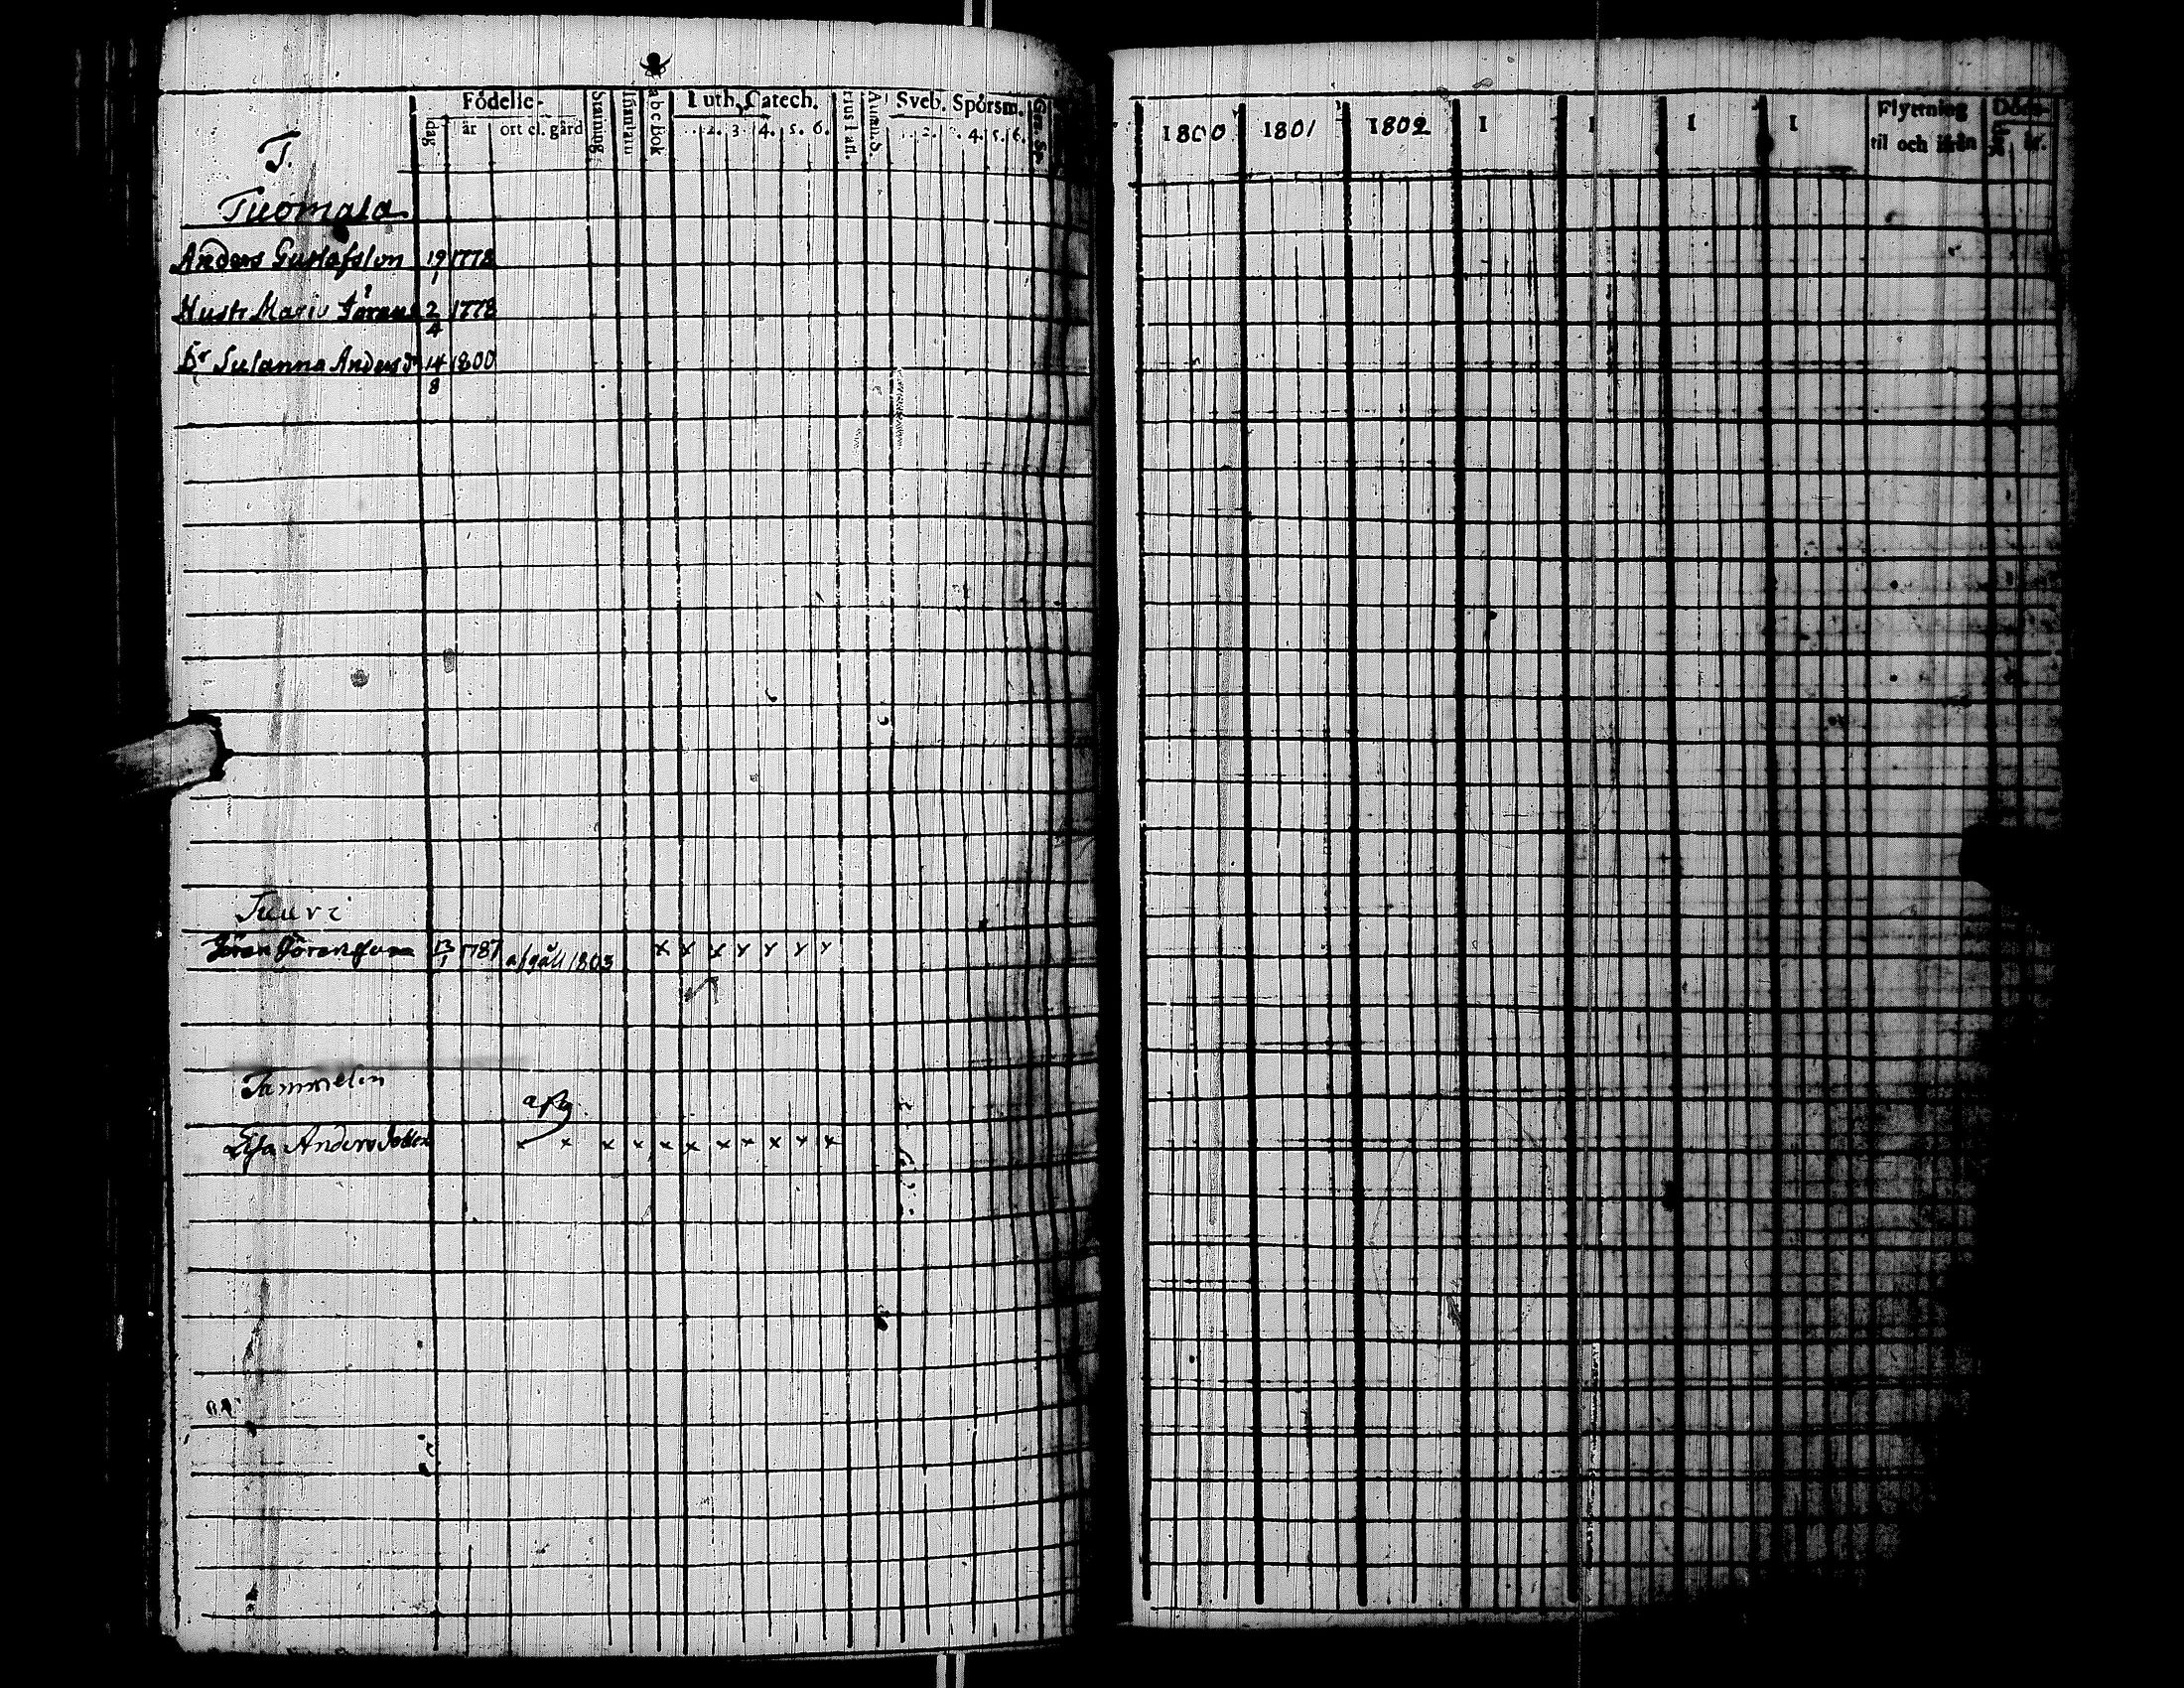 Födelse- Luth. Catech. Sveb. Spörsm.
dag år ort el. gård Stafning Innanläs a b c bok 2. 3. 4. 5. 6. Athan. S. 2. 4. 5. 6.
1800 1801 1802 1 1 1 1 Flyttning
til och ifrån år.
T.
Tuomala
Anders Gustafsson 19/1 1778
Hustr Maria Görans 2/4 1778
Dr Susanna Andersdr 14/8 1800
Tuuri
Göran Göransson 13/1 1787 afgått 1803 x x x x x x x
Tammelin
afg
Lisa Andersdotter x x x x x x x x x x x